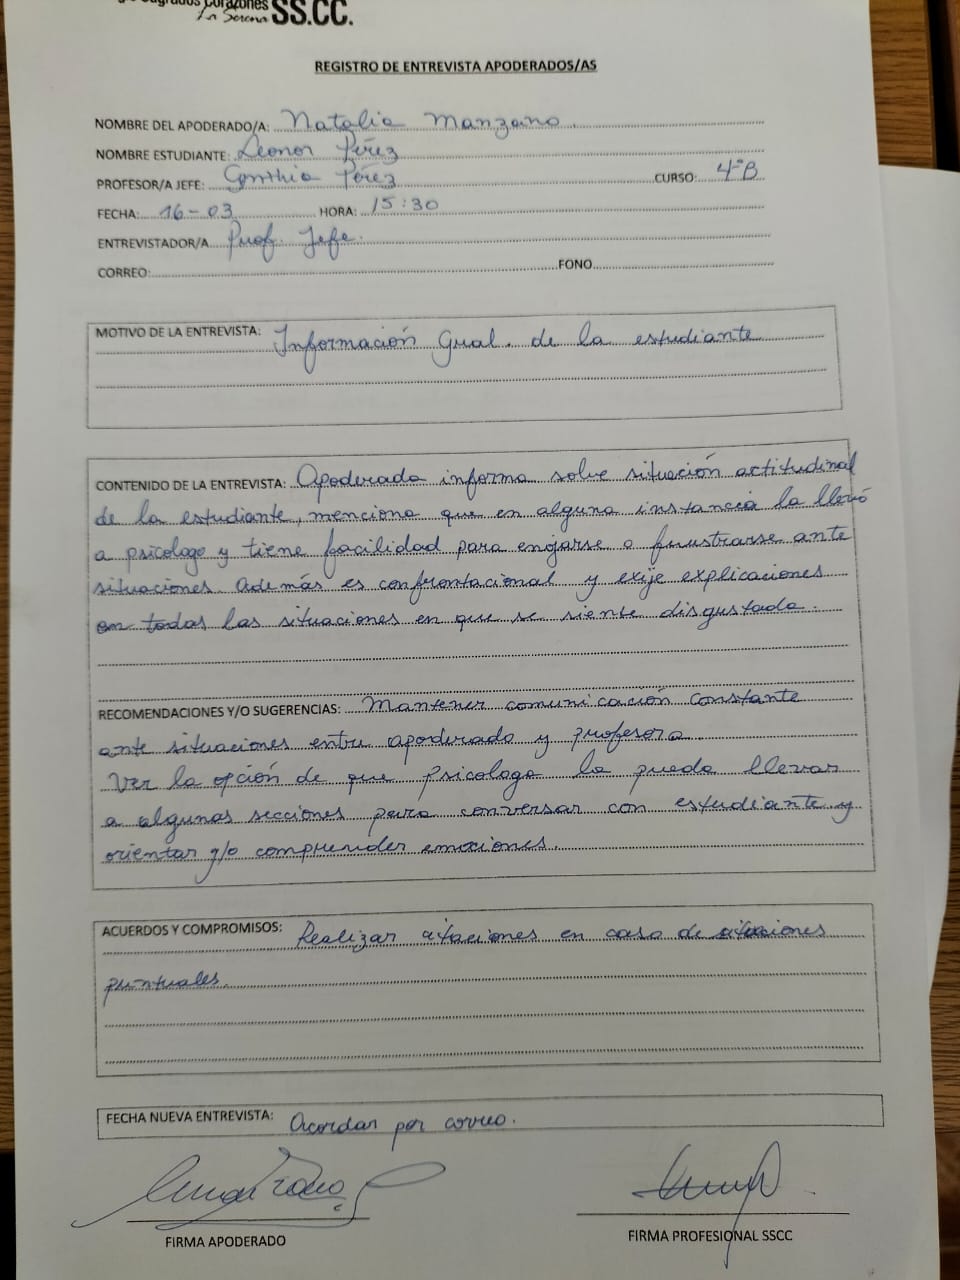 Sagrados Corazones
La Serena SS.CC.
REGISTRO DE ENTREVISTA APODERADOS/AS
NOMBRE DEL APODERADO/A: Natalia Manzano.
NOMBRE ESTUDIANTE: Leonor Pérez
PROFESOR/A JEFE: Cynthia Pérez CURSO: 4°B
FECHA: 16-03 HORA: 15:30
ENTREVISTADOR/A Prof. Jefe.
CORREO: FONO
MOTIVO DE LA ENTREVISTA: Información Gual. de la estudiante
CONTENIDO DE LA ENTREVISTA: Apoderada informa sobre situación actitudinal
de la estudiante, menciona que en alguna instancia la llevó
a psicologo y tiene facilidad para enojarse o frustrarse ante
situaciones. Además es confrontacional y exije explicaciones
en todas las situaciones en que se siente disgustada.
RECOMENDACIONES Y/O SUGERENCIAS: Mantener comunicación constante
ante situaciones entre apoderada y profesora.
Ver la opción de que psicologa la pueda llevar
a algunas secciones para conversar con estudiante y
orientar y/o comprender emociones.
ACUERDOS Y COMPROMISOS: Realizar citaciones en caso de situaciones
puntuales.
FECHA NUEVA ENTREVISTA: Acordar por correo.
FIRMA APODERADO FIRMA PROFESIONAL SSCC